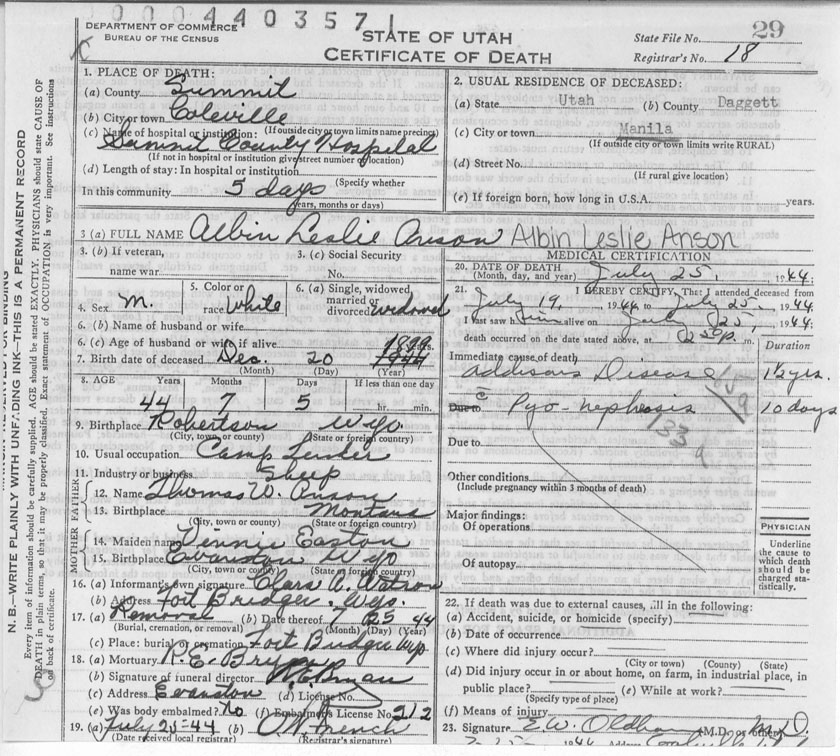 000440357 1
DEPARTMENT OF COMMERCE
BUREAU OF THE CENSUS
STATE OF UTAH
CERTIFICATE OF DEATH
State File No. 29
Registrar's No. 18
N.B.-WRITE PLAINLY WITH UNFADING INK-THIS IS A PERMANENT RECORD
Every item of information should be carefully supplied. AGE should be stated EXACTLY. PHYSICIANS should state CAUSE OF
DEATH in plain terms, so that it may be properly classified. Exact statement of OCCUPATION is very important. See instructions
on back of certificate.
1. PLACE OF DEATH:
(a) County Summit
(b) City or town Coleville
(c) Name of hospital or institution: (If outside city or town limits name precinct)
Summit County Hospital
(If not in hospital or institution give street number or location)
(d) Length of stay: In hospital or institution
(Specify whether
In this community 5 days
years, months or days)
2. USUAL RESIDENCE OF DECEASED:
(a) State Utah (b) County Daggett
(c) City or town Manila
(If outside city or town limits write RURAL)
(d) Street No.
(If rural give location)
(e) If foreign born, how long in U.S.A. years.
3 (a) FULL NAME Albin Leslie Anson Albin Leslie Anson
3. (b) If veteran,
name war
3. (c) Social Security
No.
4. Sex M.
5. Color or
race White
6. (a) Single, widowed,
married or
divorced widowed
6. (b) Name of husband or wife
6. (c) Age of husband or wife if alive yrs.
7. Birth date of deceased Dec. 20 1899
(Month) (Day) (Year)
8. AGE Years Months Days If less than one day
44 7 5 hr. min.
9. Birthplace Robertson Wyo
(City, town or county) (State or foreign country)
10. Usual occupation Camp Tender
11. Industry or business Sheep
FATHER
12. Name Thomas W. Anson
13. Birthplace Montana
(City, town or county) (State or foreign country)
MOTHER
14. Maiden name Easton
15. Birthplace Evanston Wyo
(City, town or county) (State or foreign country)
16. (a) Informant's own signature Clara A. Watson
(b) Address Fort Bridger. Wyo.
17. (a) Removal (b) Date thereof 7 25 44
(Burial, cremation, or removal) (Month) (Day) (Year)
(c) Place: burial or cremation Fort Bridger Wyo
18. (a) Mortuary R. E. Bryan
(b) Signature of funeral director
(c) Address Evanston (d) License No.
(e) Was body embalmed? No (f) Embalmer's License No. 212
19. (a) July 25-44 (b)
(Date received local registrar) (Registrar's signature)
MEDICAL CERTIFICATION
20. DATE OF DEATH
(Month, day, and year) July 25, 1944
21. I HEREBY CERTIFY, That I attended deceased from
July 19, 1944 to July 25, 1944
I last saw him alive on July 25, 1944:
death occurred on the date stated above, at m.
Duration
Immediate cause of death
Addisons Disease 1½ yrs.
Due to Pyo-nephrosis 10 days
133 a
Due to
Other conditions
(Include pregnancy within 3 months of death)
Major findings:
Of operations
Of autopsy
PHYSICIAN
Underline
the cause to
which death
should be
charged sta-
tistically.
22. If death was due to external causes, fill in the following:
(a) Accident, suicide, or homicide (specify)
(b) Date of occurrence
(c) Where did injury occur?
(City or town) (County) (State)
(d) Did injury occur in or about home, on farm, in industrial place, in
public place? (e) While at work?
(Specify type of place)
(f) Means of injury
23. Signature E.W. Oldham (M.D. or other) M.D.